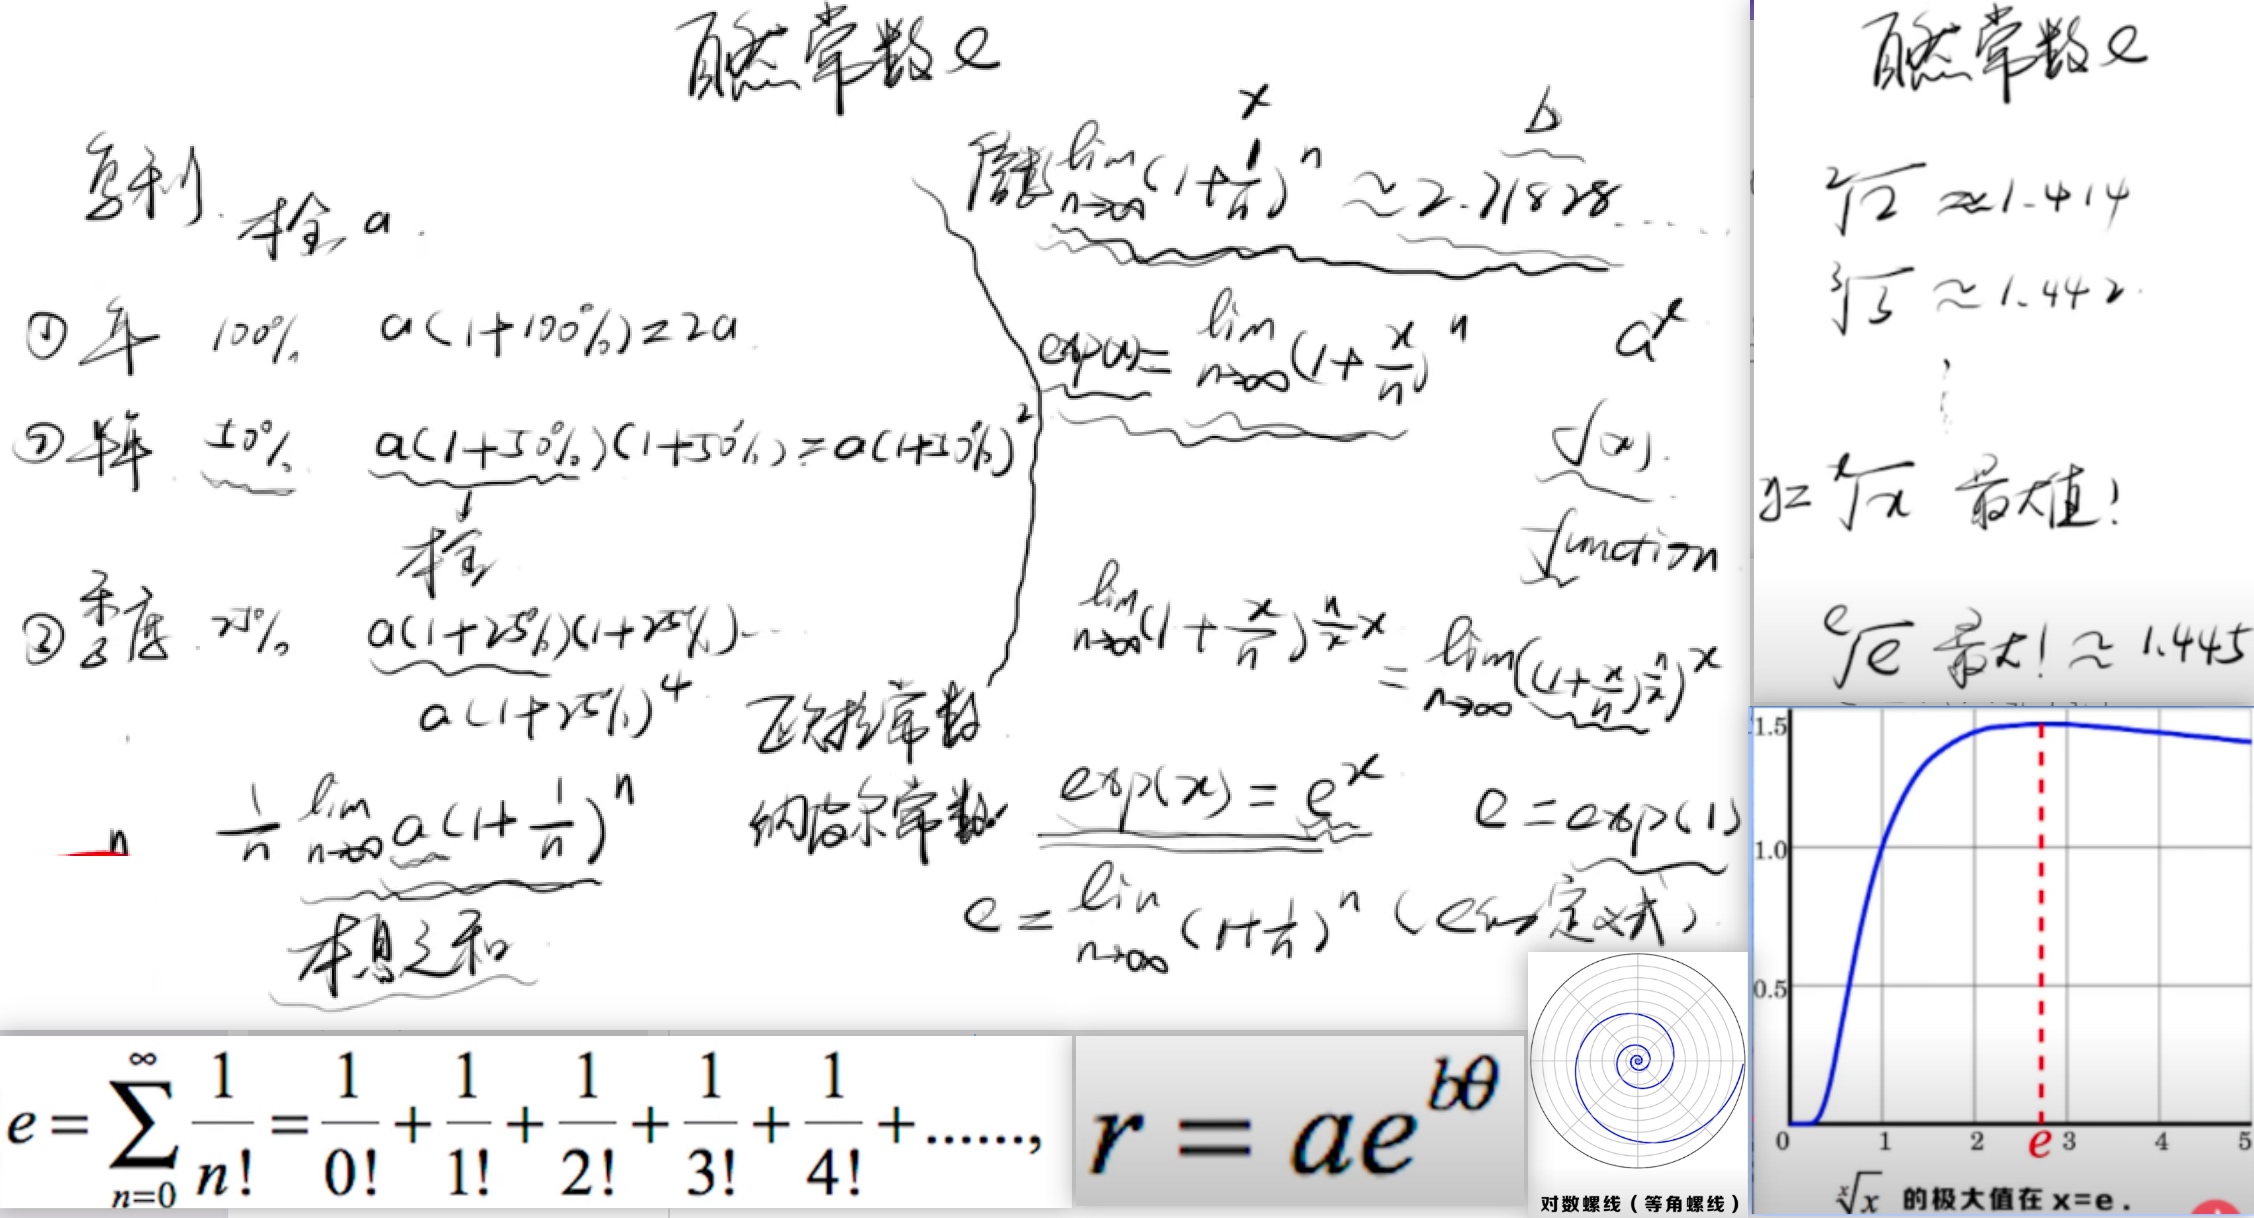 自然常数e
复利
本金a
① 年 100% a(1+100%)=2a
② 半年 50% a(1+50%)(1+50%)=a(1+50%)²
本金
③ 季度 25% a(1+25%)(1+25%)...
a(1+25%)⁴
n 1/n lim n→∞ a(1+1/n)ⁿ
本息之和
欧拉常数
纳皮尔常数
x
b
lim n→∞ (1+1/n)ⁿ ≈2.71828......
exp(x)= lim n→∞ (1+x/n)ⁿ
aˣ
f(x)
function
lim n→∞ (1+x/n)^(n/x x)
= lim n→∞ ((1+x/n)^(n/x))ˣ
exp(x)=eˣ
e=exp(1)
e= lim n→∞ (1+1/n)ⁿ (e的定义式)
自然常数e
²√2 ≈1.414
³√3 ≈1.442
y= ˣ√x 最大值!
ᵉ√e 最大! ≈ 1.445
e = ∑ n=0 ∞ 1/n! = 1/0! + 1/1! + 1/2! + 1/3! + 1/4! + ......,
r = ae^bθ
对数螺线(等角螺线)
1.5
1.0
0.5
0 1 2 e 3 4 5
ˣ√x 的极大值在 x=e .